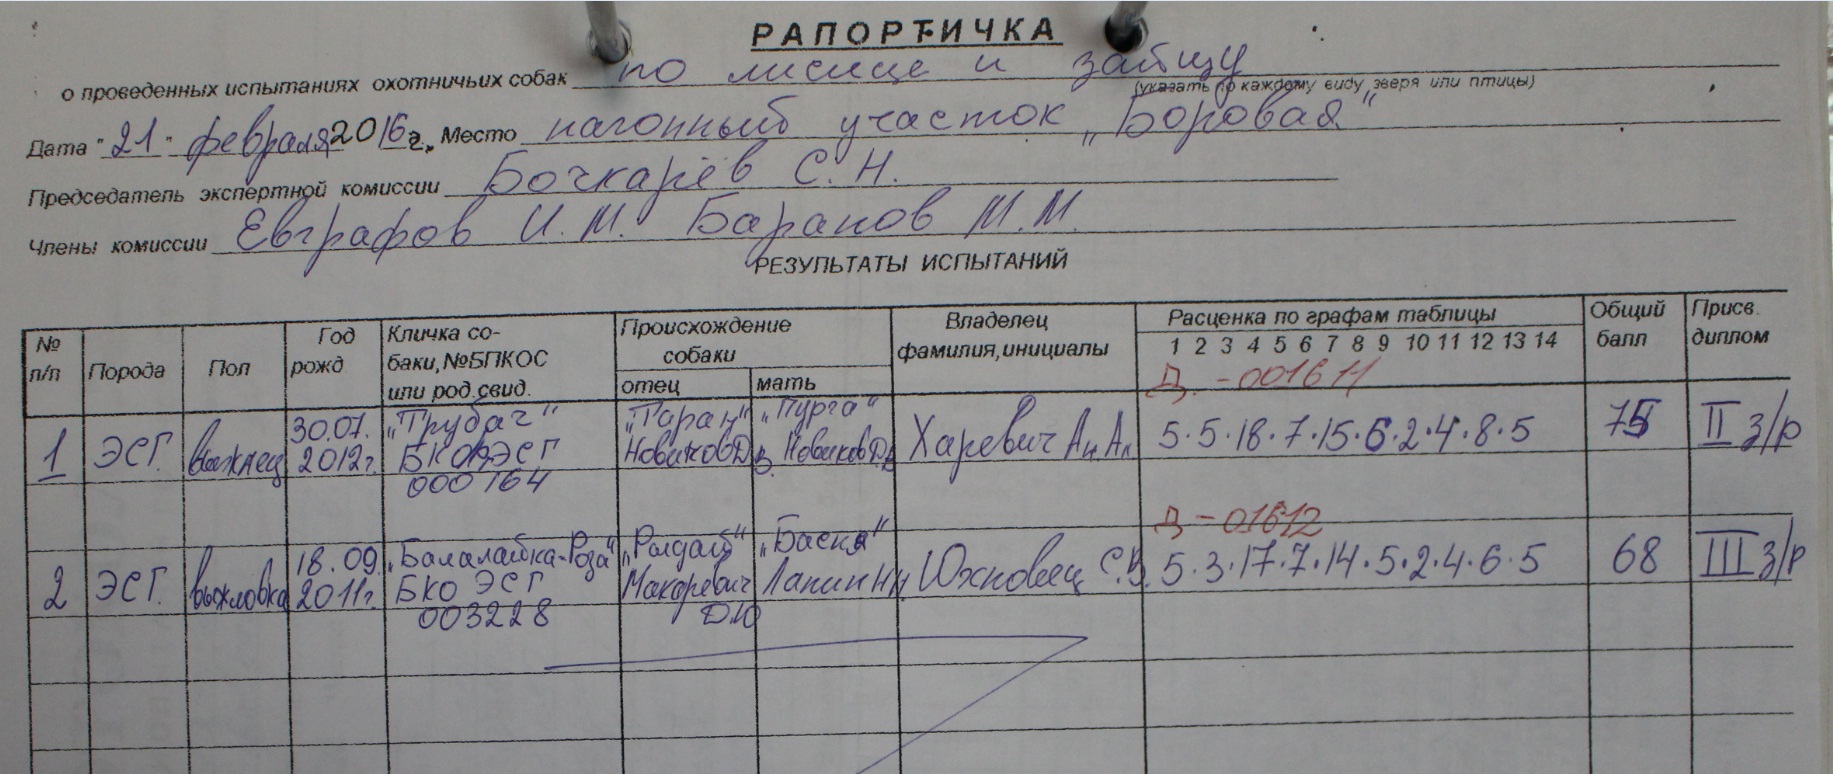 РАПОРТИЧКА
о проведенных испытаниях охотничьих собак по лисице и зайцу
(указать по каждому виду зверя или птицы)
Дата "21" февраля 2016г. Место нагонный участок „Боровая"
Председатель экспертной комиссии Бочкарёв С. Н.
Члены комиссии Евграфов И. М. Баранов М. М.
РЕЗУЛЬТАТЫ ИСПЫТАНИЙ
№ п/п
Порода
Пол
Год рожд
Кличка со-
баки, №БПКОС
или род.свид.
Происхождение
собаки
отец мать
Владелец
фамилия, инициалы
Расценка по графам таблицы
1 2 3 4 5 6 7 8 9 10 11 12 13 14
Общий
балл
Присв.
диплом
Д. - 001611
1 ЭСГ. выжлец 30.07. 2012г. „Трубач" „Таран" „Пурга" Харевич 5·5·18·7·15·6·2·4·8·5 75 II з/р
БКО ЭСГ Новиков Д. В. Новиков Д.В.
000164
Д - 01612
2 ЭСГ. выжловка 18.09. 2011г. „Балалайка-Роза" „Рыдай" „Баска" Юхновец С.В. 5·3·17·7·14·5·2·4·6·5 68 III з/р
БКО ЭСГ Макаревич Лапин Н.Н.
003228 Д.Ю